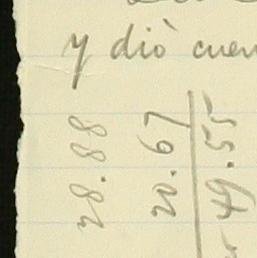 y diò cuen
28.88
20.67
49.55